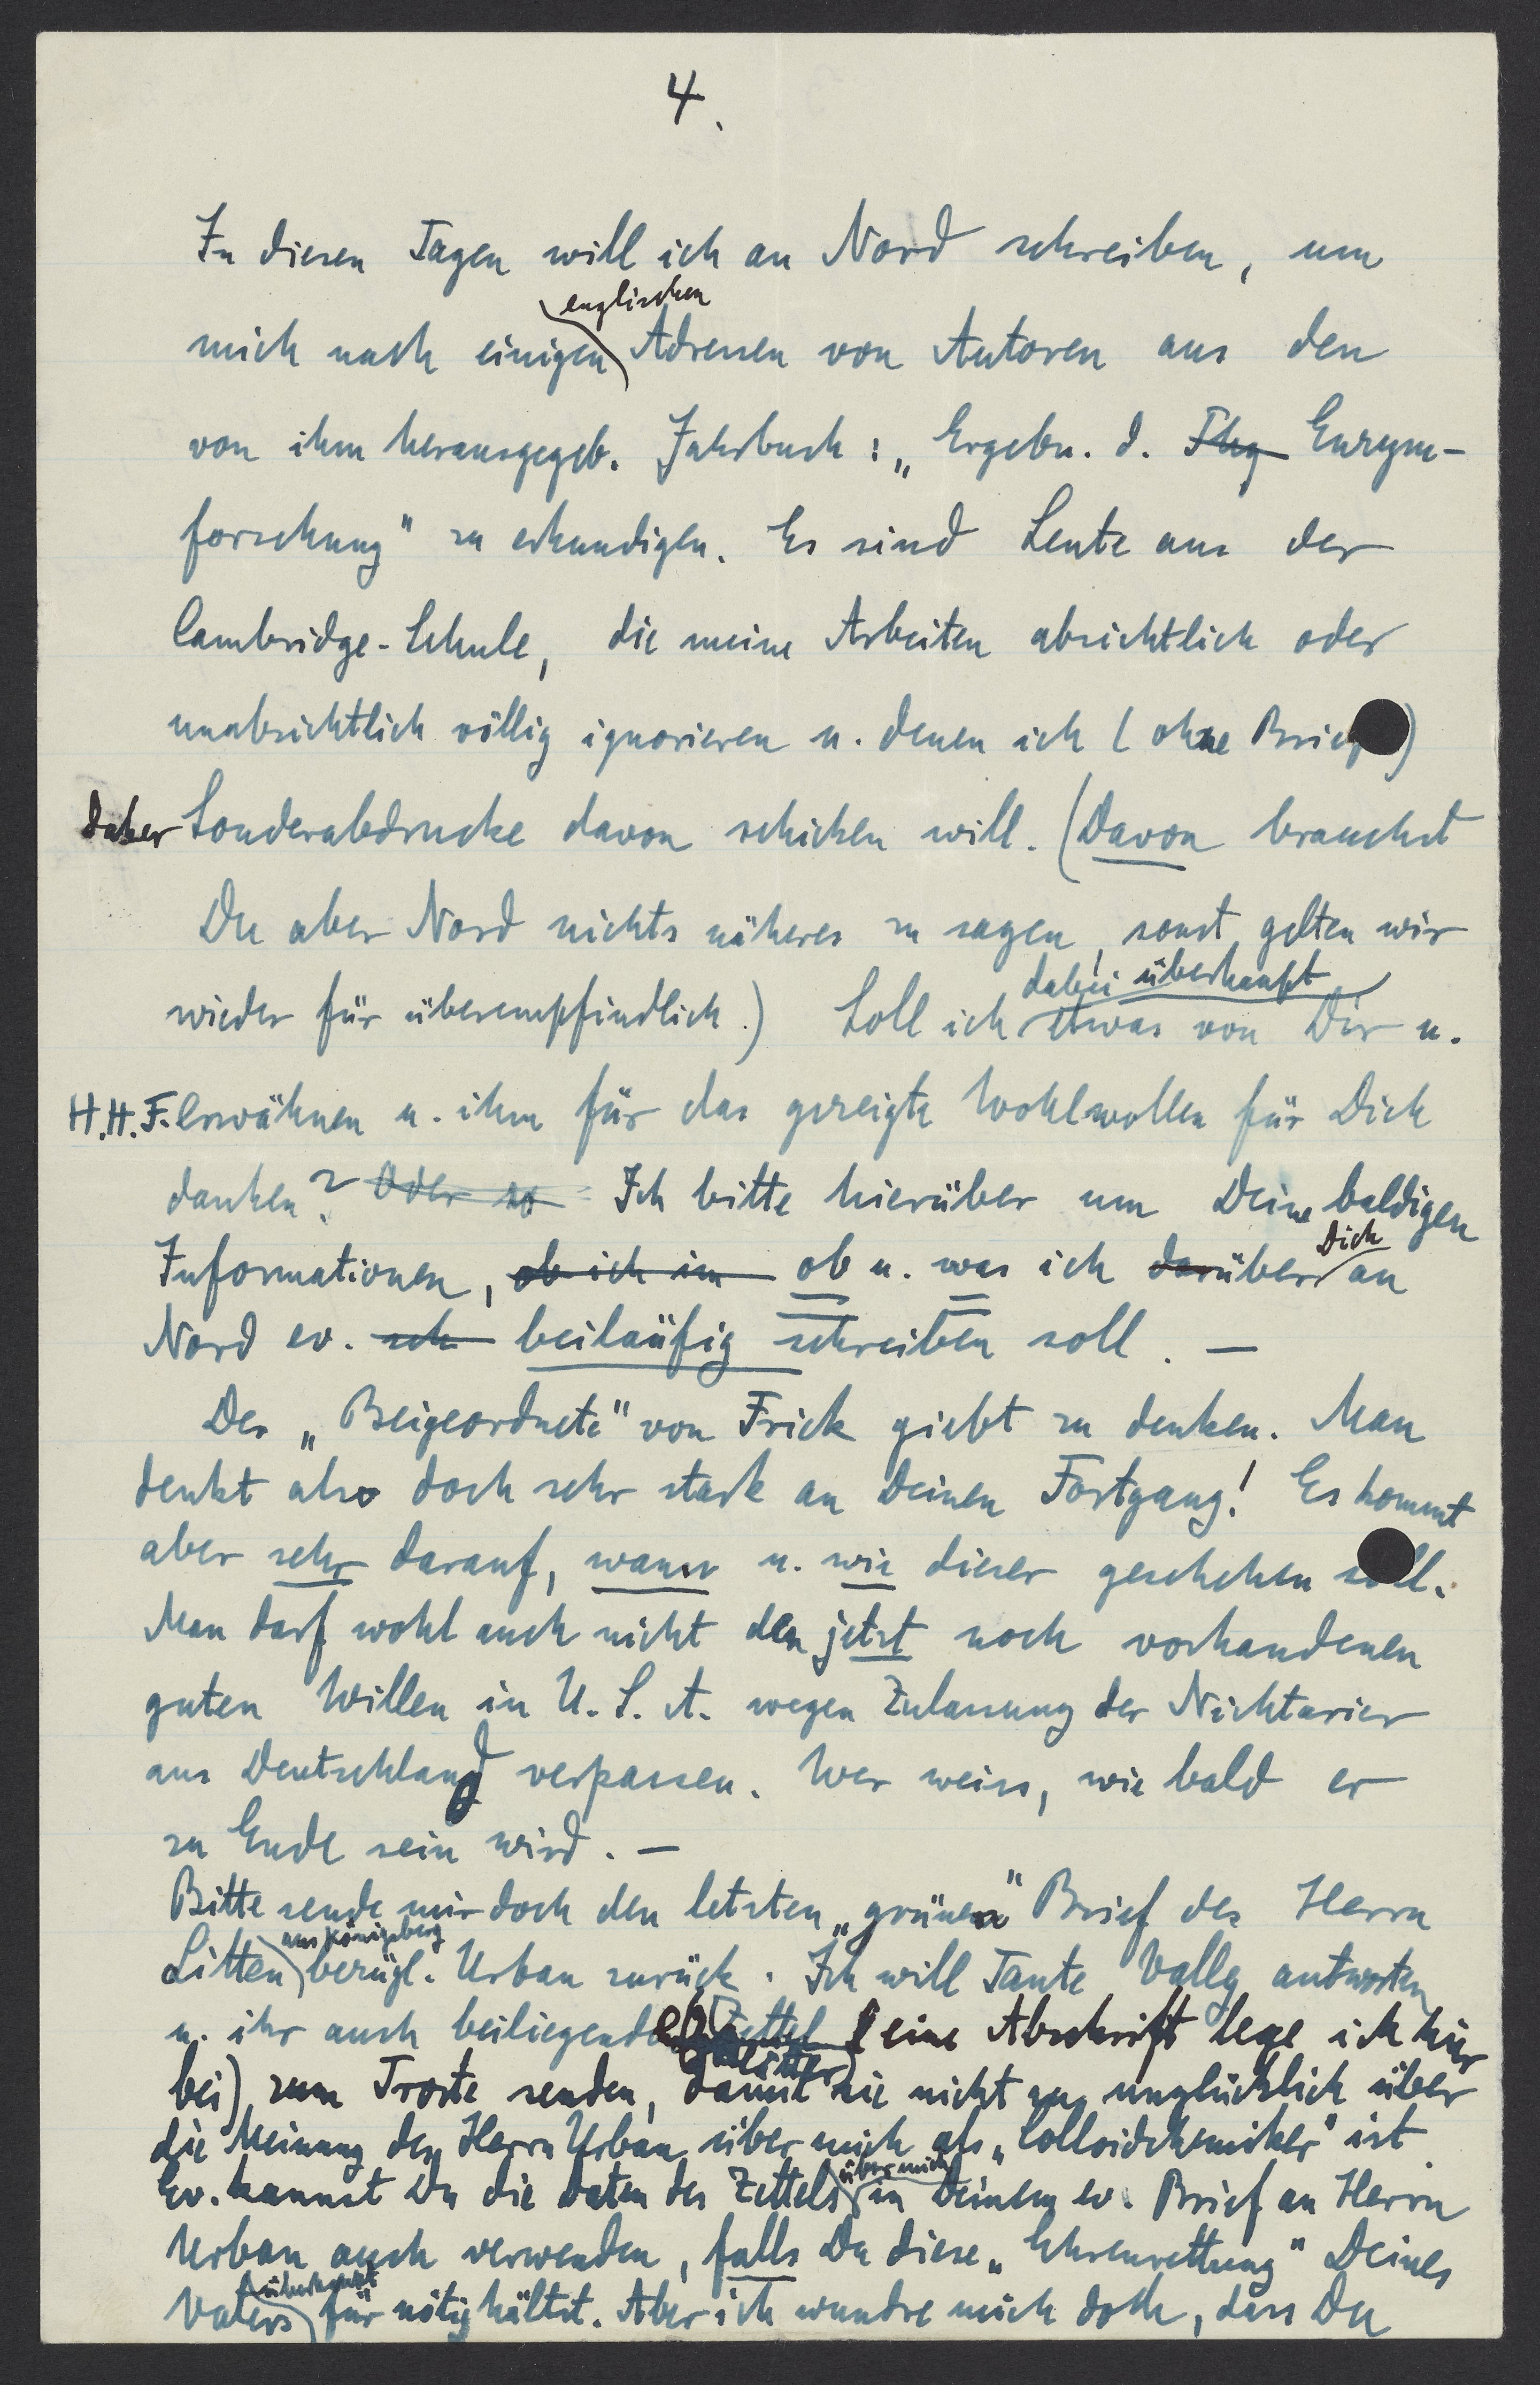 4.
In diesen Tagen will ich an Nord schreiben, um
englischen
mich nach einigen Adressen von Autoren aus den
von ihm herausgegeb. Jahrbuch: „Ergebn. d. Enzym-
forschung" zu erkundigen. Es sind Leute aus der
Cambridge-Schule, die meine Arbeiten absichtlich oder
unabsichtlich völlig ignorieren u. denen ich (ohne Brief)
daher Sonderabdrucke davon schicken will. (Davon brauchst
Du aber Nord nichts näheres zu sagen, sonst gelten wir
wieder für überempfindlich!) Soll ich dabei überhaupt etwas von Dir u.
H.H.F. erwähnen u. ihm für das gezeigte Wohlwollen für Dich
danken? Oder so Ich bitte hierüber um Deine baldigen
Informationen, ob ich im ob u. was ich darüber Dich an
Nord ev. sch beiläufig schreiben soll. —
Der „Beigeordnete" von Frick giebt zu denken. Man
denkt also doch sehr stark an Deinen Fortgang! Es kommt
aber sehr darauf, wann u. wie dieser geschehen soll.
Man darf wohl auch nicht den jetzt noch vorhandenen
guten Willen in U.S.A. wegen Zulassung der Nichtarier
aus Deutschland verpassen. Wer weiss, wie bald er
zu Ende sein wird. —
Bitte sende mir doch den letzten „grünen" Brief des Herrn
aus Königsberg
Litten bezügl. Urban zurück. Ich will Tante Vally antworten
u. ihr auch beiliegenden Zettel (eine Abschrift lege ich hier
bei) zum Troste senden, damit sie nicht zu unglücklich über
die Meinung des Herrn Urban über mich als „Colloidchemiker" ist.
Ev. kannst Du die Daten des Zettels über mich in Deinem ev. Brief an Herrn
Urban auch verwenden, falls Du diese „Ehrenrettung" Deines
Vaters überhaupt für nötig hältst. Aber ich wundre mich doch, dass Du